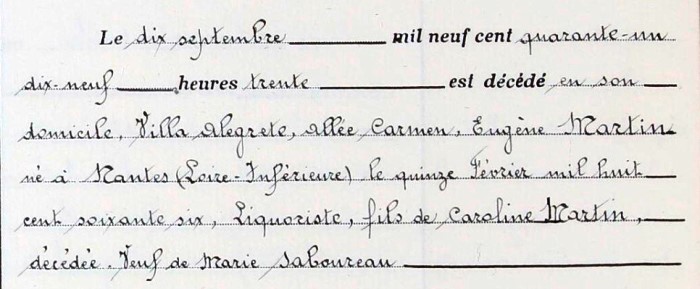 Le dix septembre mil neuf cent quarante-un
dix-neuf heures trente est décédé en son
domicile, Villa Alegrete, allée Carmen, Eugène Martin
né à Nantes (Loire-Inférieure) le quinze Février mil huit
cent soixante six, Liquoriste, fils de Caroline Martin,
décédée. Veuf de Marie Saboureau